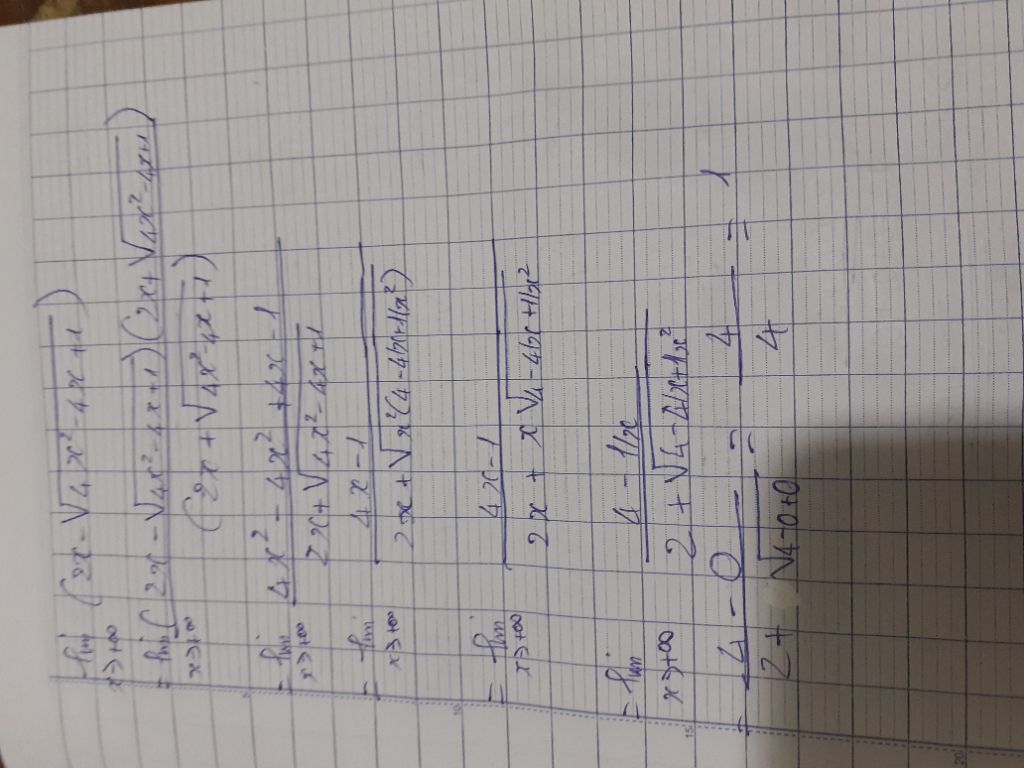 lim (2x - √(4x² - 4x + 1))
x→+∞
= lim ((2x - √(4x² - 4x + 1)) (2x + √(4x² - 4x + 1))) / (2x + √(4x² - 4x + 1))
x→+∞
= lim (4x² - 4x² + 4x - 1) / (2x + √(4x² - 4x + 1))
x→+∞
= lim (4x - 1) / (2x + √(x²(4 - 4/x + 1/x²)))
x→+∞
= lim (4x - 1) / (2x + x√(4 - 4/x + 1/x²))
x→+∞
= lim (4 - 1/x) / (2 + √(4 - 4/x + 1/x²))
x→+∞
= (4 - 0) / (2 + √(4 - 0 + 0)) = 4 / 4 = 1